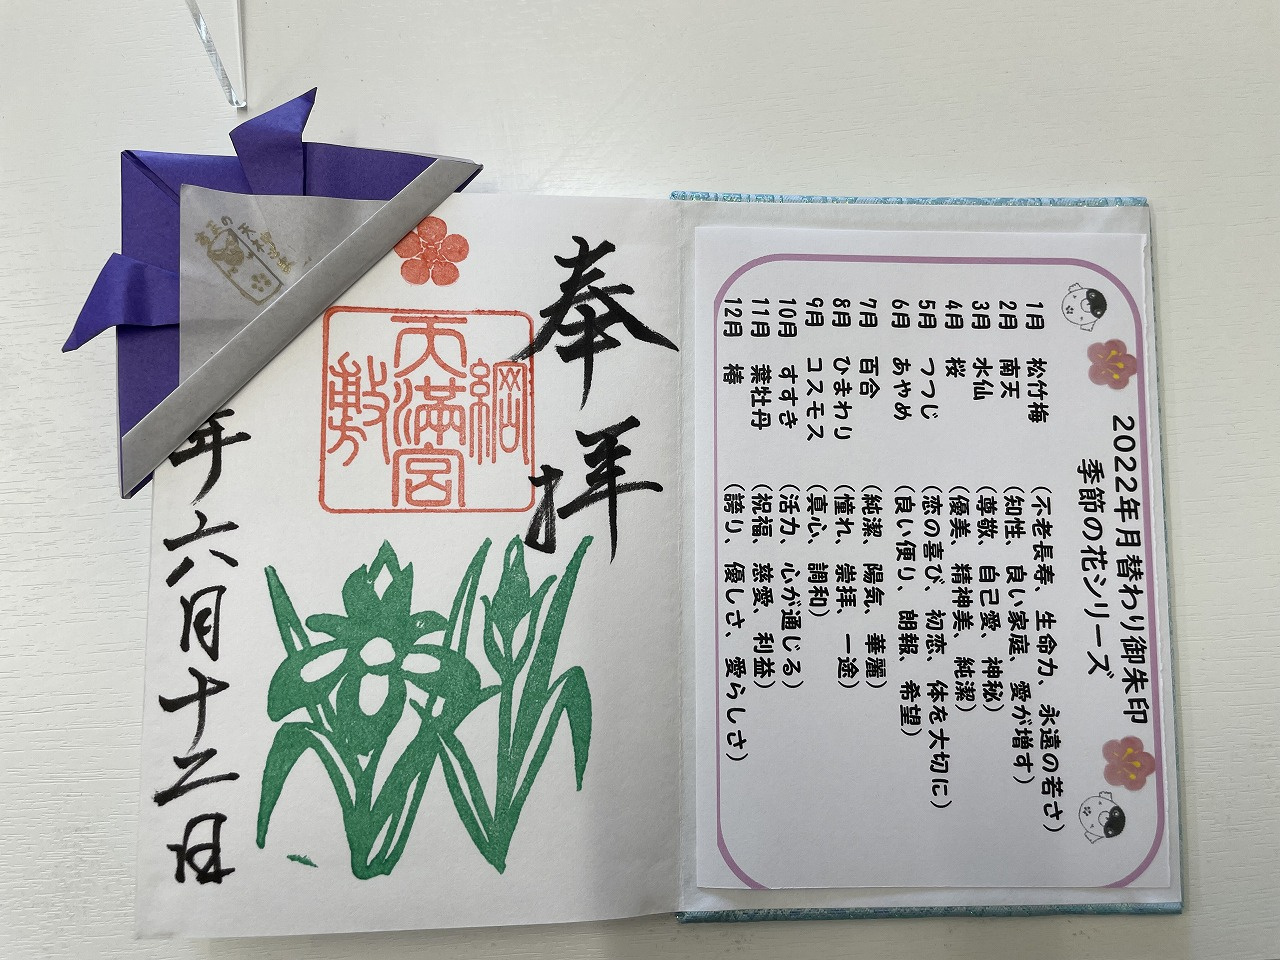 奉拝
綱敷天満宮
年六月十二日
2022年月替わり御朱印
季節の花シリーズ
1月 松竹梅 (不老長寿、生命力、永遠の若さ)
2月 南天 (知性、良い家庭、愛が増す)
3月 水仙 (尊敬、自己愛、神秘)
4月 桜 (優美、精神美、純潔)
5月 つつじ (恋の喜び、初恋、体を大切に)
6月 あやめ (良い便り、朗報、希望)
7月 百合 (純潔、陽気、華麗)
8月 ひまわり (憧れ、崇拝、一途)
9月 コスモス (真心、調和)
10月 すすき (活力、心が通じる)
11月 葉牡丹 (祝福、慈愛、利益)
12月 椿 (誇り、優しさ、愛らしさ)